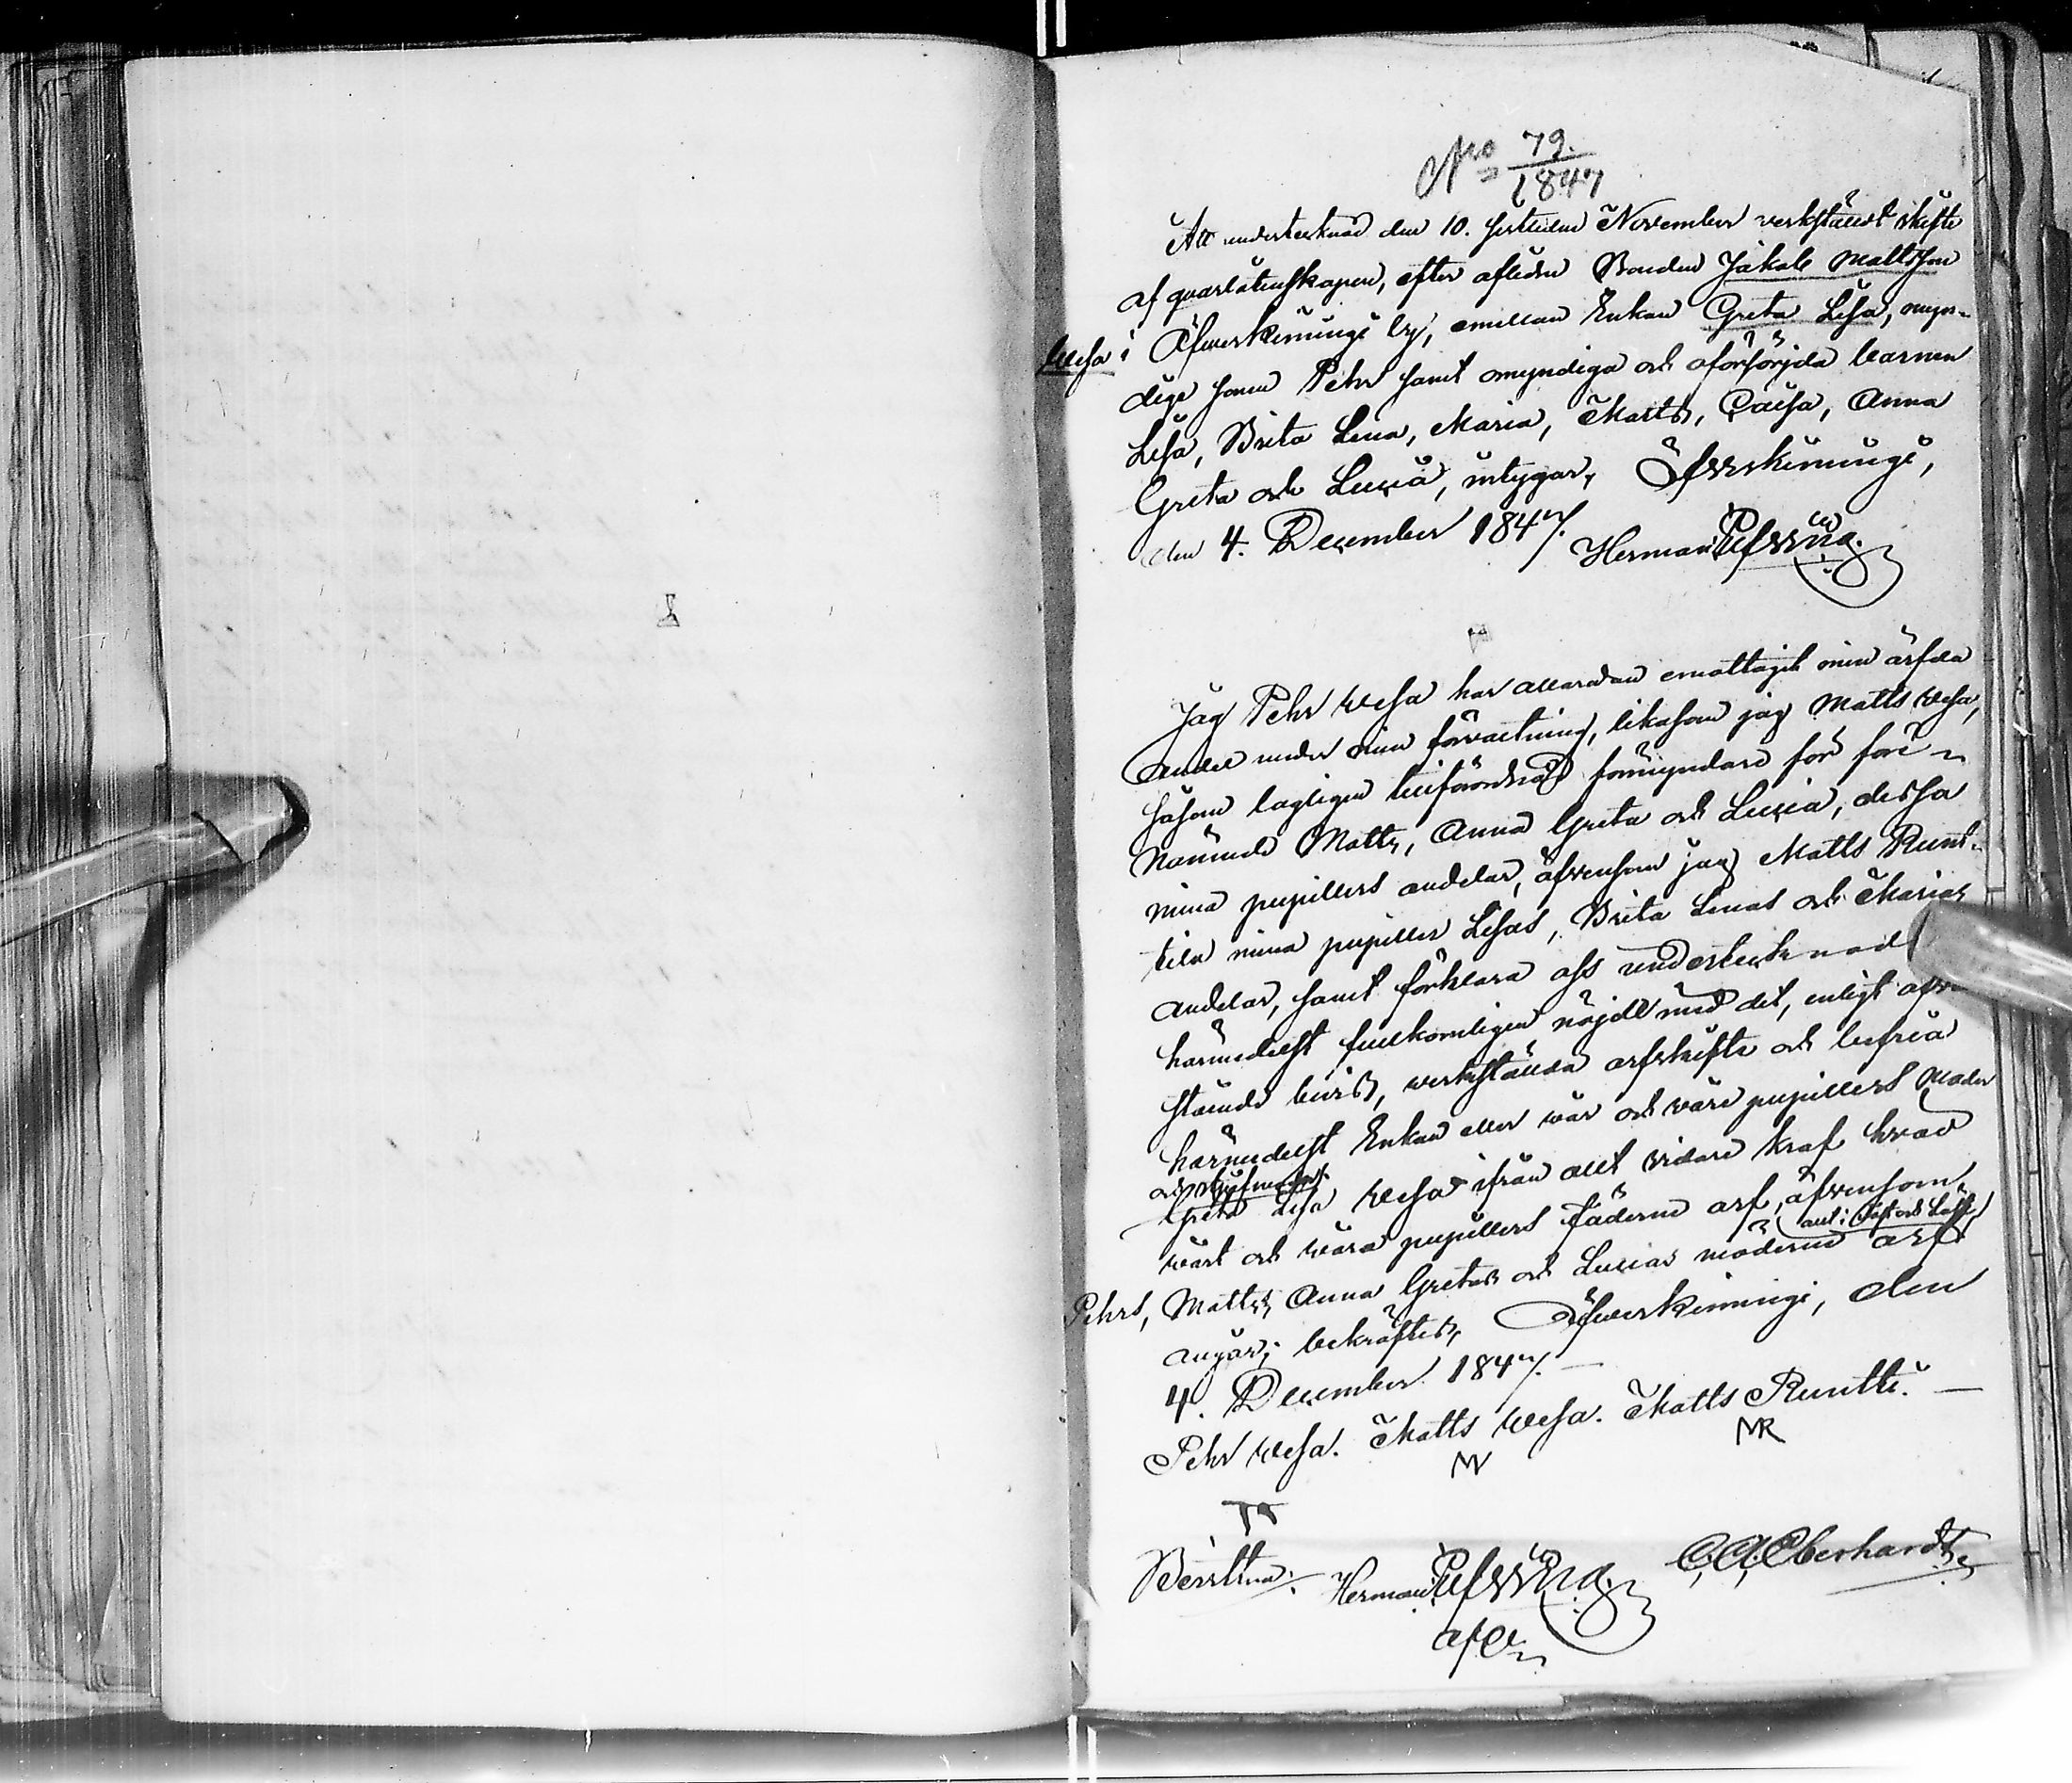 No 79.
1847
Att undertecknad den 10. sistleden November verkstäldt skifte
af qvarlåtenskapen, efter aflidne Bonden Jakob Mattsson
Wesa i Öfwerkiminge by, emellan Enkan Greta Lisa, myn-
dige sonen Pehr samt omyndiga och oförsörjda barnen
Lisa, Brita Lena, Maria, Matts, Caisa, Anna
Greta och Lucia, intygar, Öfverkiminge,
den 4. December 1847. Herman
Jag Pehr Wesa har allaredan emottagit min ärfda
andel under min förvaltning, likasom jag Matts Wesa,
såsom lagligen tillförordnad förmyndare för före-
nämnde Matts, Anna Greta och Lucia, dessa
mina pupillers andelar, äfvensom jag Matts Runt-
ti mina pupiller Lisas, Brita Lenas och Marias
andelar, samt förklara oss undertecknad
härmedelst fullkomligen nöjdt med det, enligt
stående bevis, werkstälda arfskifte och befria
härmedelst Enkan eller vår och våre pupillers Moder
och styfmoder
Greta Lisa Wesa ifrån allt vidare kraf hvad
vårt och våra pupillers fäderne arf, äfvensom
Pehrs, Matts, Anna Gretas och Lucias möderne arf
angår; bekräftes, Öfwerkiminge, den
4. December 1847. —
Pehr Wesa. Matts Wesa. Matts Runtti. —
MW MR
Bevittna: Herman C. A. Eberhardt